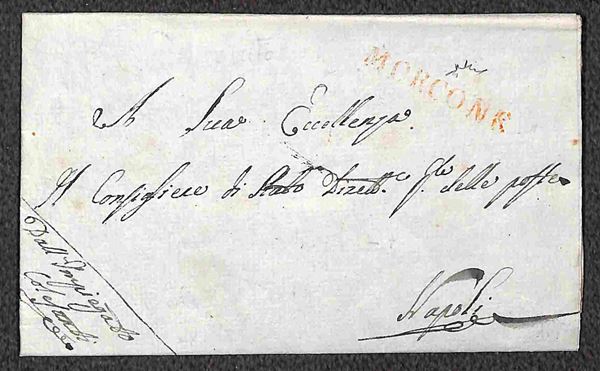 MORCONE
A Sua Eccellenza
Il Consigliere di Stato Dirett.re G.le delle poste
Napoli
Dall'Impiegato